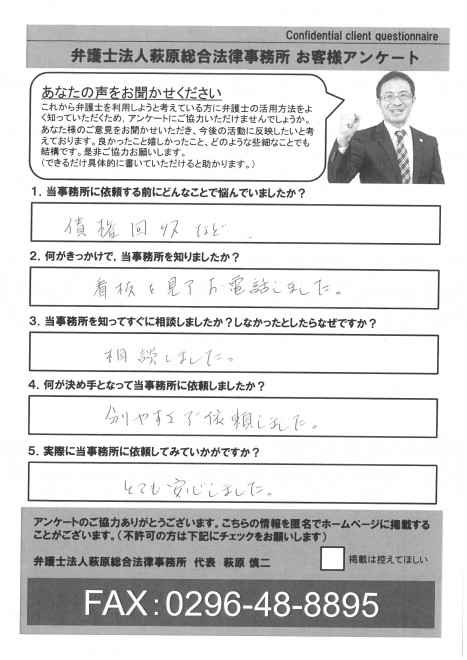 Confidential client questionnaire
弁護士法人萩原総合法律事務所 お客様アンケート
あなたの声をお聞かせください
これから弁護士を利用しようと考えている方に弁護士の活用方法をよ
く知っていただくため、アンケートにご協力いただけませんでしょうか。
あなた様のご意見をお聞かせいただき、今後の活動に反映したいと考
えております。良かったこと嬉しかったこと、どのような些細なことでも
結構です。是非ご協力お願いします。
(できるだけ具体的に書いていただけると助かります。)
1. 当事務所に依頼する前にどんなことで悩んでいましたか？
債権回収など.
2. 何がきっかけで、当事務所を知りましたか？
看板を見てお電話しました。
3. 当事務所を知ってすぐに相談しましたか？しなかったとしたらなぜですか？
相談しました。
4. 何が決め手となって当事務所に依頼しましたか？
分りやすくて依頼しました。
5. 実際に当事務所に依頼してみていかがですか？
とても安心しました。
アンケートのご協力ありがとうございます。こちらの情報を匿名でホームページに掲載する
ことがございます。(不許可の方は下記にチェックをお願いします)
弁護士法人萩原総合法律事務所 代表 萩原 慎二
掲載は控えてほしい
FAX：0296-48-8895